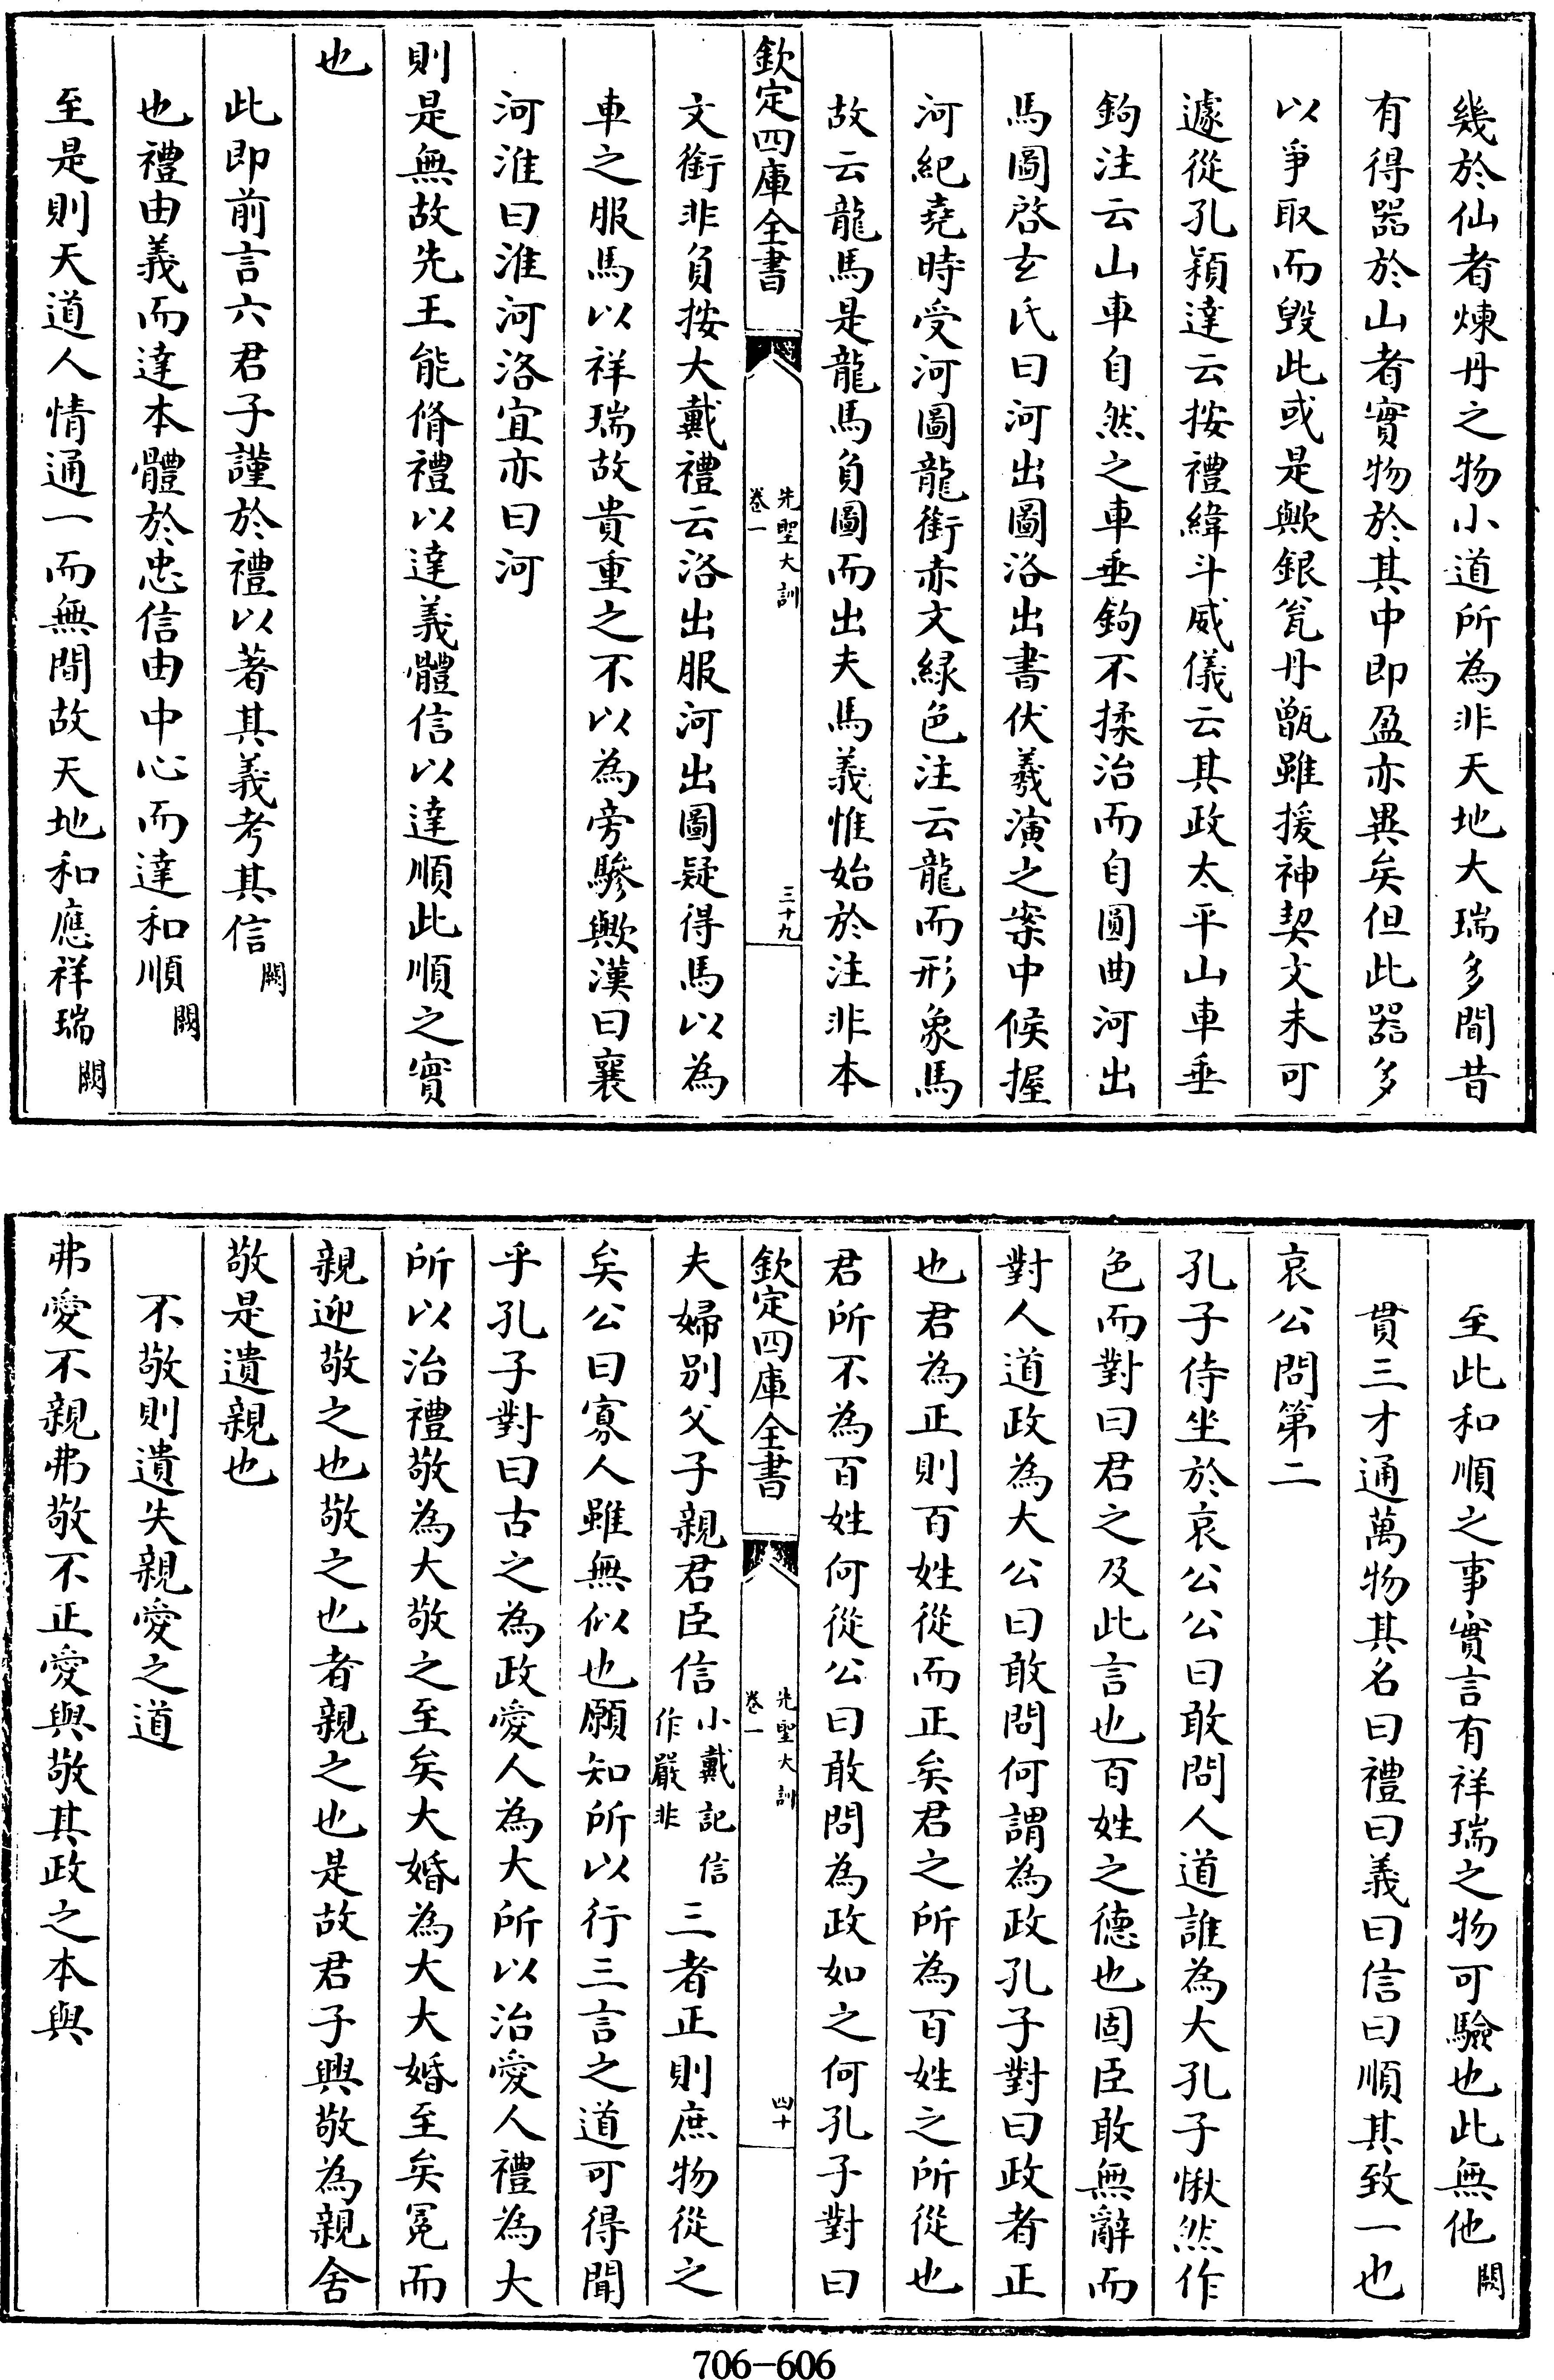 幾於仙者煉丹之物小道所為非天地大瑞多聞昔
有得器於山者實物於其中即盈亦異矣但此器多
以爭取而毀此或是歟銀瓮丹甑雖援神契文未可
遽從孔穎達云按禮緯斗威儀云其政太平山車垂
鉤注云山車自然之車垂鉤不揉治而自圓曲河出
馬圖啓玄氏曰河出圖洛出書伏羲演之案中候握
河紀堯時受河圖龍銜赤文緑色注云龍而形象馬
故云龍馬是龍馬負圖而出夫馬義惟始於注非本
欽定四庫全書
先聖大訓
卷一
三十九
文銜非負按大戴禮云洛出服河出圖疑得馬以為
車之服馬以祥瑞故貴重之不以為旁驂歟漢曰襄
河淮曰淮河洛宜亦曰河
則是無故先王能脩禮以達義體信以達順此順之實
也
此即前言六君子謹於禮以著其義考其信闕
也禮由義而達本體於忠信由中心而達和順闕
至是則天道人情通一而無間故天地和應祥瑞闕
至此和順之事實言有祥瑞之物可驗也此無他闕
貫三才通萬物其名曰禮曰義曰信曰順其致一也
哀公問第二
孔子侍坐於哀公公曰敢問人道誰為大孔子愀然作
色而對曰君之及此言也百姓之德也固臣敢無辭而
對人道政為大公曰敢問何謂為政孔子對曰政者正
也君為正則百姓從而正矣君之所為百姓之所從也
君所不為百姓何從公曰敢問為政如之何孔子對曰
欽定四庫全書
先聖大訓
卷一
四十
夫婦別父子親君臣信小戴記信作嚴非三者正則庶物從之
矣公曰寡人雖無似也願知所以行三言之道可得聞
乎孔子對曰古之為政愛人為大所以治愛人禮為大
所以治禮敬為大敬之至矣大婚為大大婚至矣冕而
親迎敬之也敬之也者親之也是故君子興敬為親舍
敬是遺親也
不敬則遺失親愛之道
弗愛不親弗敬不正愛與敬其政之本與
706-606